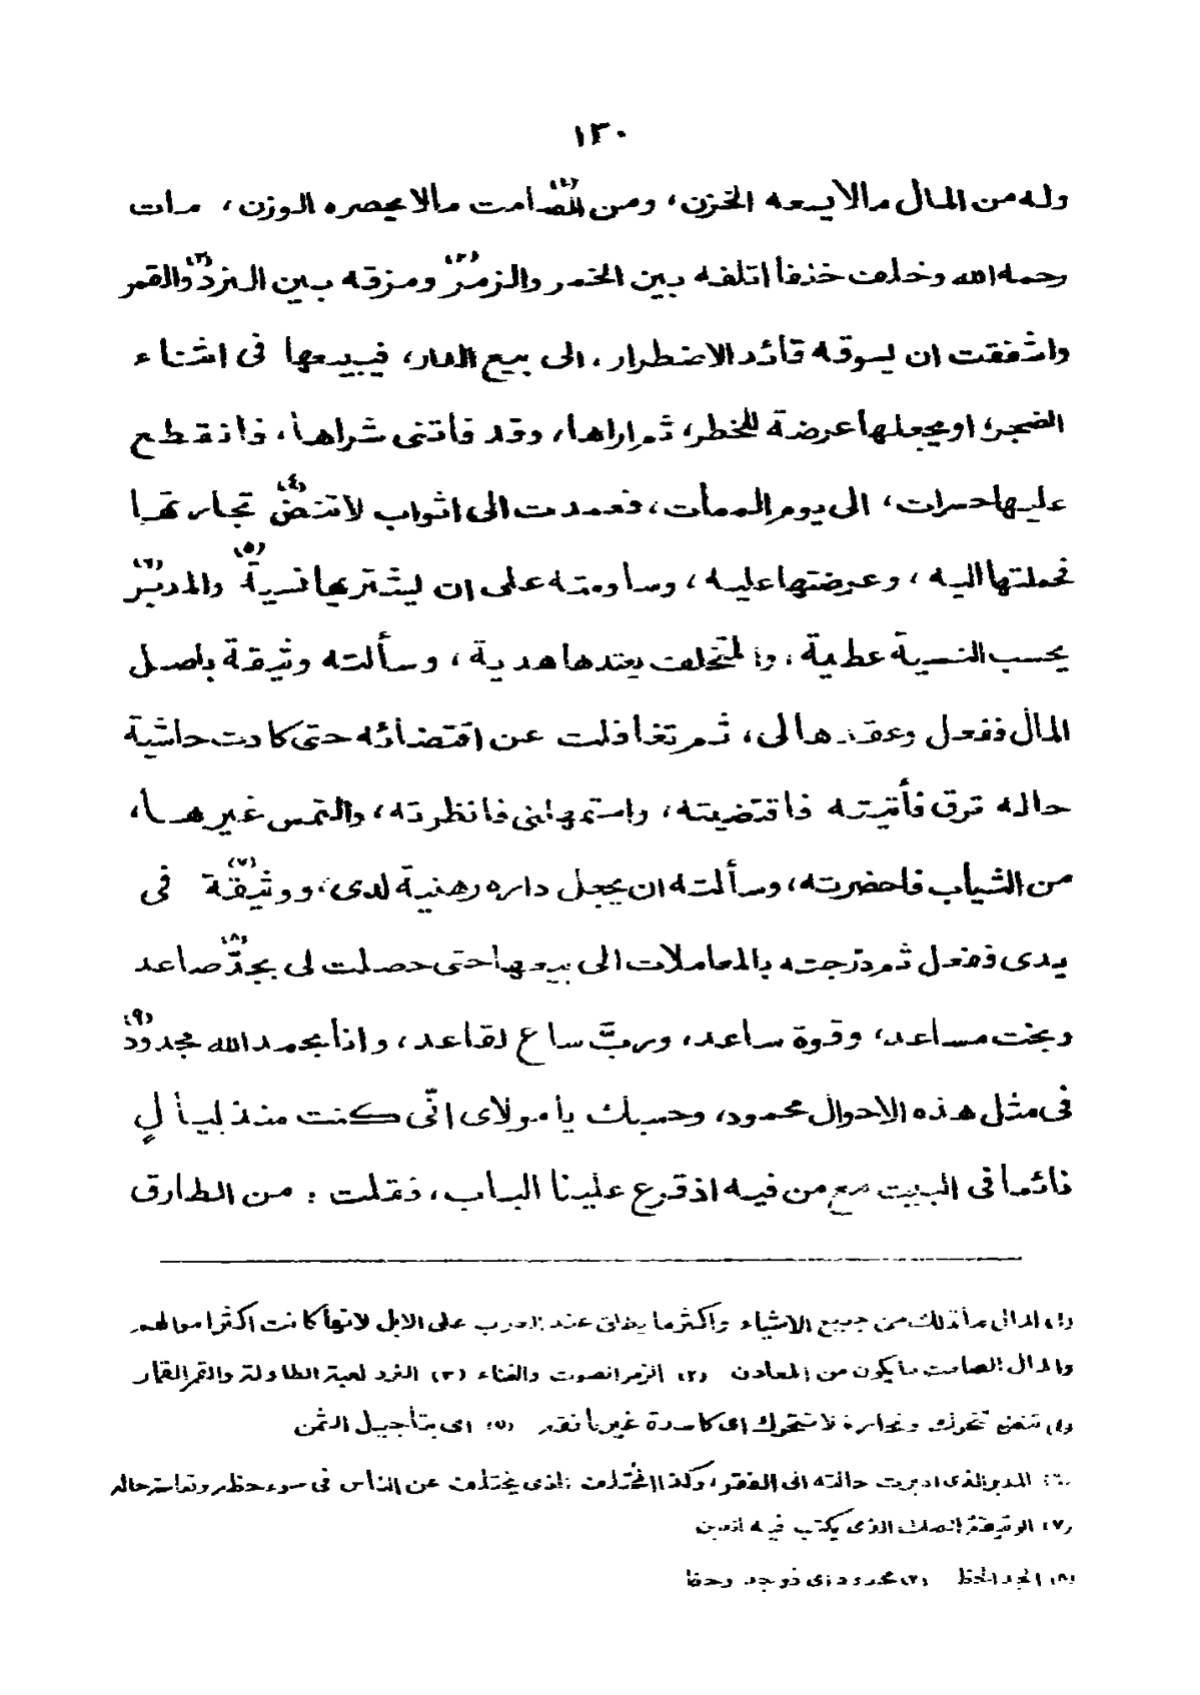 ١٣٠
وله من المال مالا يسعه الخزن، ومن الصّامت(١) مالا يحصره الوزن، مات
رحمه الله وخلف خلفا اتلفه بين الخمر والزمر(٢) ومزقه بين النرد(٣) والقمر
واشفقت ان يسوقه قائد الاضطرار، الى بيع الدار، فيبيعها فى اثناء
الضجر، او يجعلها عرضة للخطر، ثم اراها، وقد فاتنى شراها، فانقطع
عليها حسرات، الى يوم الممات، فعمدت الى اثواب لا تنض(٤) تجارتها
فحملتها اليه، وعرضتها عليه، وساومته على ان يشتريها نسية(٥) والمدبر(٦)
يحسب النسية عطية، والمتخلف يعتدها هدية، وسألته وثيقة باصل
المال ففعل وعقدها لى، ثم تغافلت عن اقتضائه حتى كادت حاشية
حاله ترق فأتيته فاقتضيته، واستمهلنى فانظرته، والتمس غيرها،
من الثياب فاحضرته، وسألته ان يجعل داره رهنية لدى، ووثيقة(٧) فى
يدى ففعل ثم درّجته بالمعاملات الى بيعها حتى حصلت لى بجدّ(٨) صاعد
وبخت مساعد، وقوة ساعد، وربّ ساع لقاعد، وانا بحمد الله مجدود(٩)
فى مثل هذه الاحوال محمود، وحسبك يا مولاى انّى كنت منذ ليالٍ
نائما فى البيت مع من فيه اذ قرع علينا الباب، فقلت : من الطارق
(١) المال ما تملك من جميع الاشياء واكثر ما يطلق عند العرب على الابل لانها كانت اكثر اموالهم
والمال الصامت ما يكون من المعادن (٢) الزمر الصوت والغناء (٣) النرد لعبة الطاولة والقمر القمار
(٤) تنض تتحرك وتجارة لا تتحرك اى كاسدة غير نافقة (٥) اى بتأجيل الثمن
(٦) المدبر الذى ادبرت حالته الى الفقر، وكذا المتخلف الذى يختلف عن الناس فى سوء حظه وتعاسة حاله
(٧) الوثيقة الصك الذى يكتب فيه الدين
(٨) الجد الحظ (٩) مجدود اى ذو جد وحظ